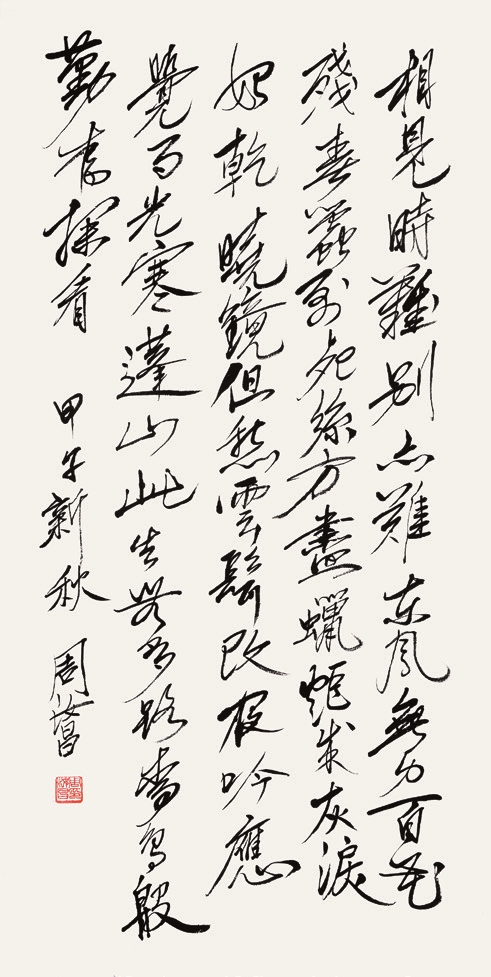 相見時難別亦難東風無力百花
殘春蠶到死絲方盡蠟炬成灰淚
始乾曉鏡但愁雲鬢改夜吟應
覺月光寒蓬山此去無多路青鳥殷
勤為探看 甲午新秋 周汝昌